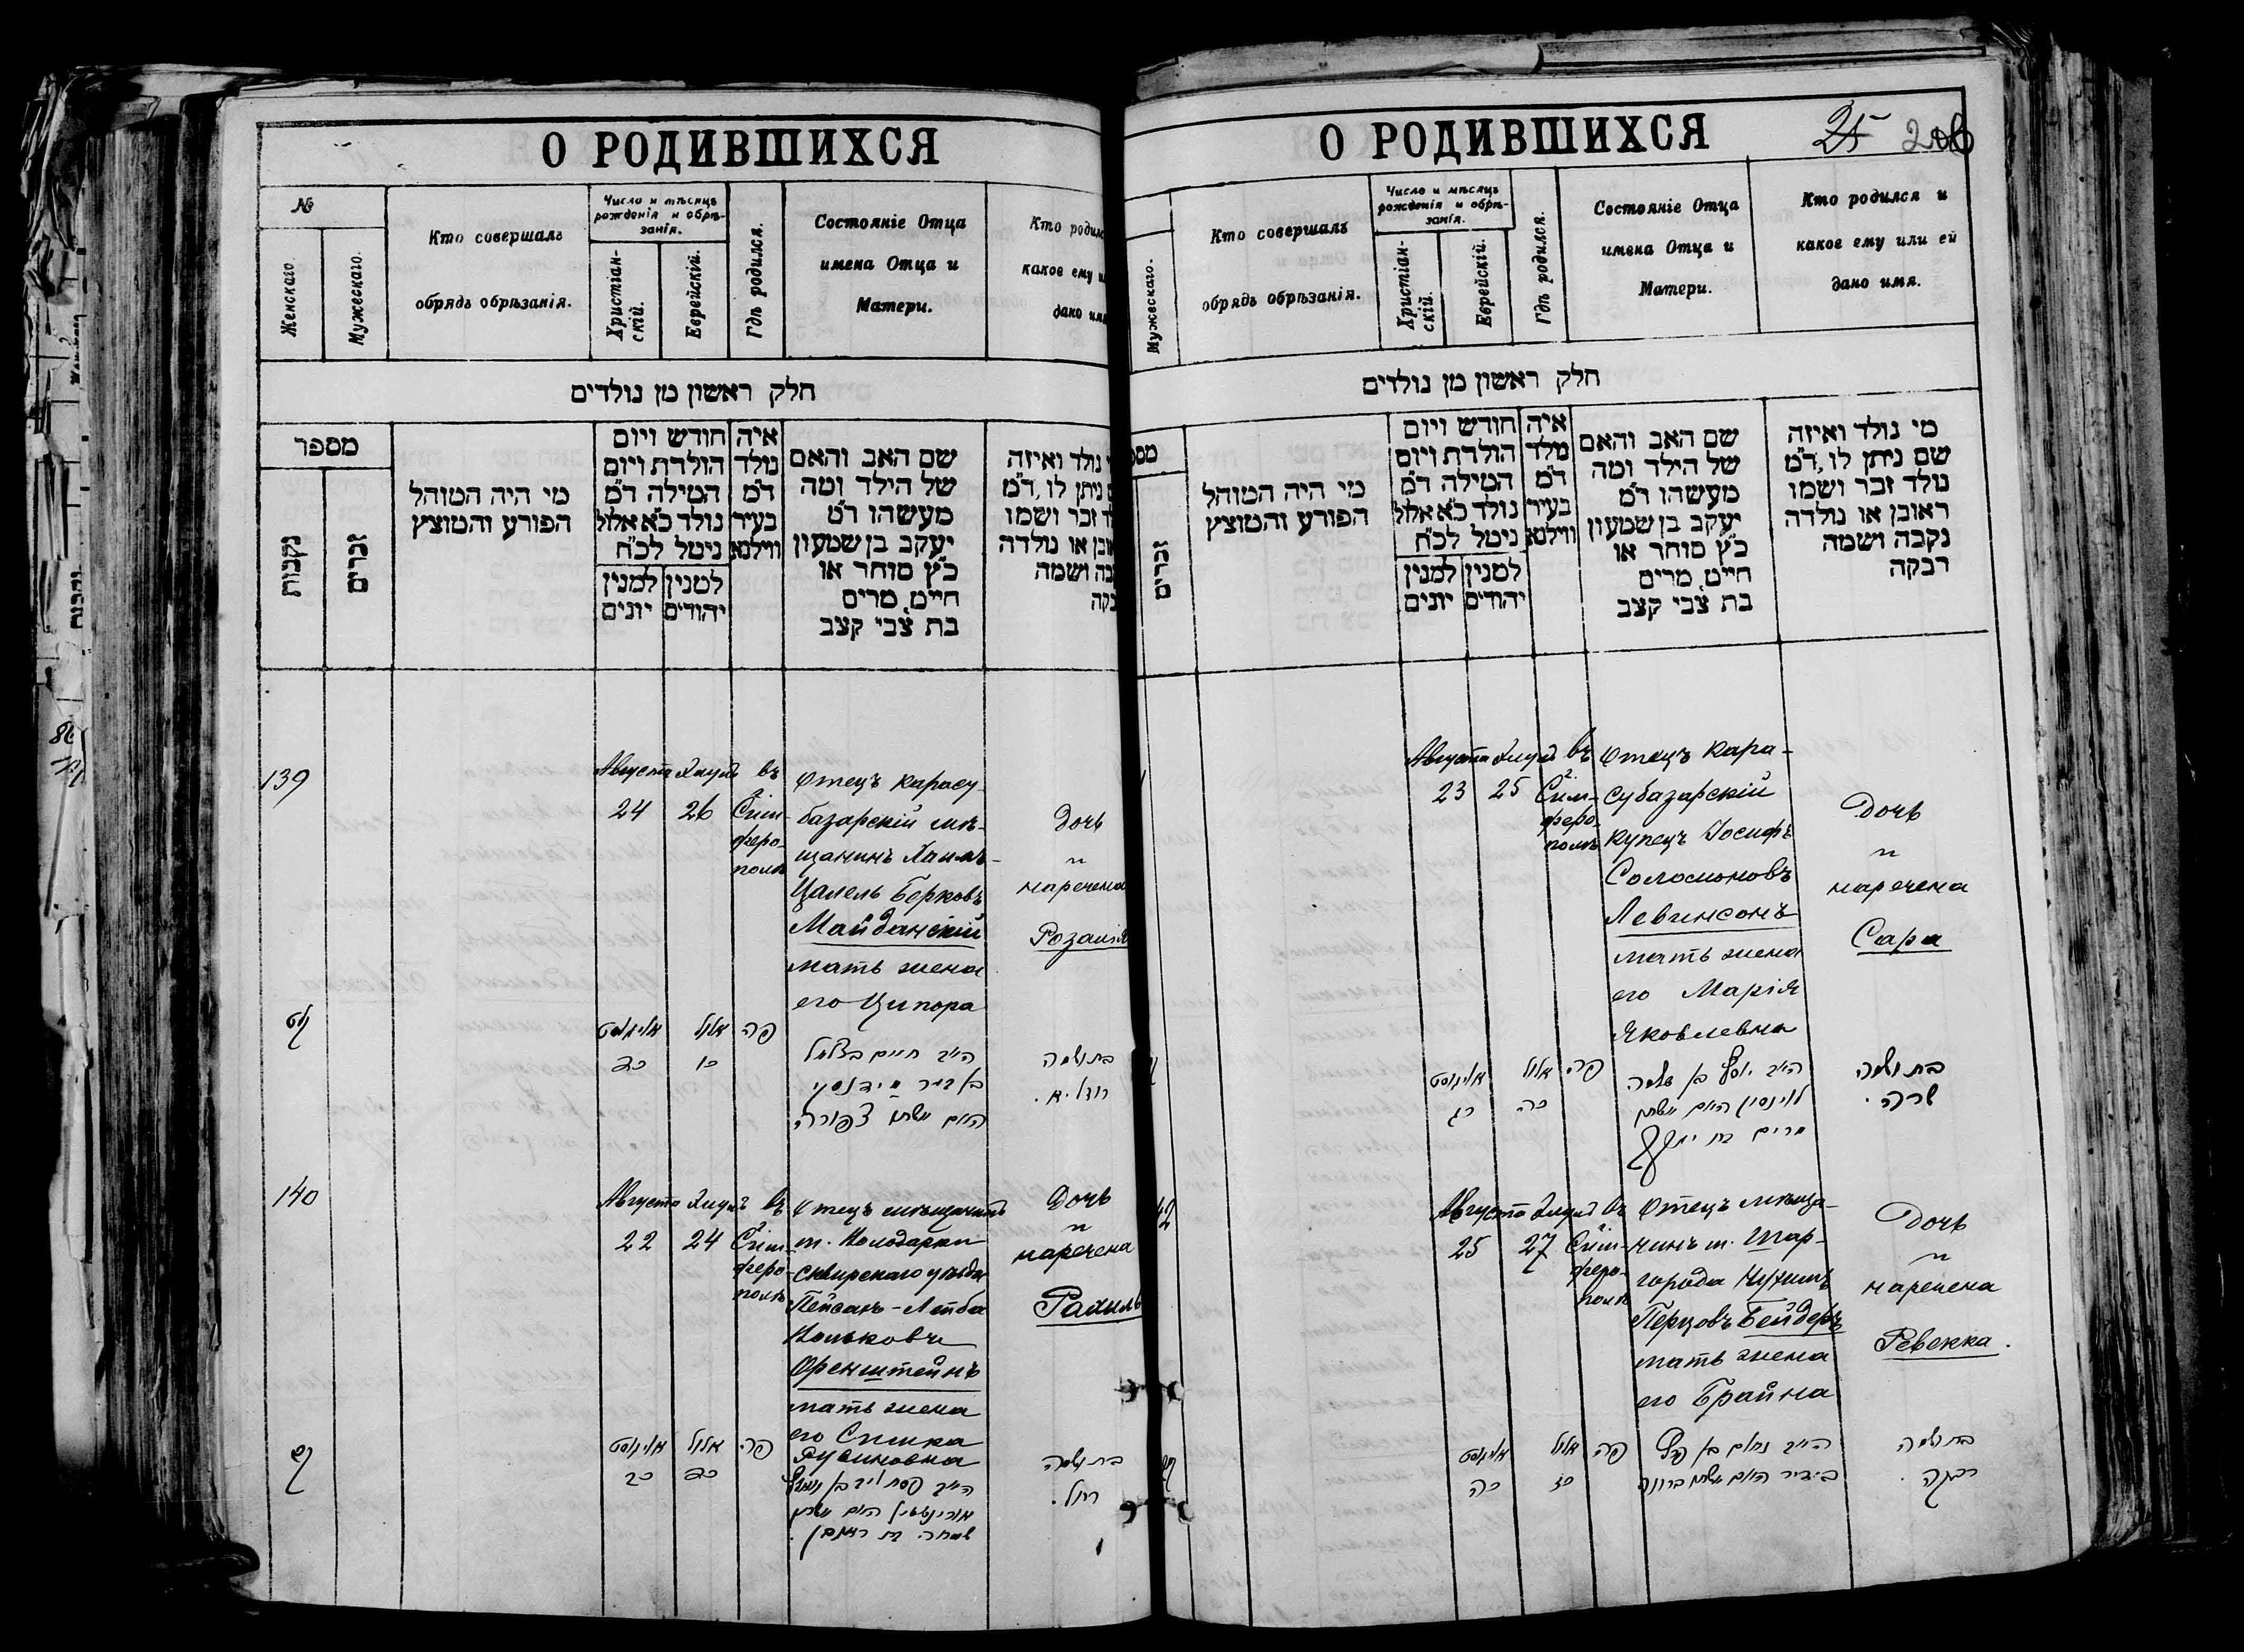 О РОДИВШИХСЯ
№
Женскаго.
Мужескаго.
Кто совершалъ
обрядъ обрѣзанія.
Число и мѣсяцъ
рожденія и обрѣ-
занія.
Христіан-
скій.
Еврейскій.
Гдѣ родился.
Состояніе Отца
имена Отца и
Матери.
Кто родилс
какое ему и
дано имя
חלק ראשון מן נולדים
מספר
נקבות
זכרים
מי היה המוהל
הפורע והמוצץ
חודש ויום
הולדת ויום
המילה ד״מ
נולד כ״א אלול
ניטל לכ״ח
למנין יונים
למנין יהודים
איה
נולד
ד״מ
בעיר
ווילנא
שם האב והאם
של הילד ומה
מעשהו ד״מ
יעקב בן שמעון
כ״ץ סוחר או
חייט, מרים
בת צבי קצב
נולד ואיזה
ניתן לו, ד״מ
ד זכר ושמו
ובן או נולדה
בה ושמה
בקה
139
Августа
24
26
въ
г.
Сим-
феро-
полѣ
Отецъ карасу-
базарскій мѣ-
щанинъ Хаимъ-
Цалель Берковъ
Майданскій
мать жена
его Ципора
Дочь
наречена
Розалія
אויגוסט
כד
אלול
כו
פה
ה״ה חיים בצלאל
צפורה
בת ושמה
140
Августа
22
24
въ
г.
Сим-
феро-
полѣ
Отецъ мѣщанинъ
м. Володарки
сквирскаго уѣзда
Пейсахъ-Лейба
Оренштейнъ
мать жена
его Симка
Рувиновна
Дочь
наречена
Рахиль
אויגוסט
כב
אלול
כד
פה
בת ושמה
רחל.
О РОДИВШИХСЯ
25
206
Мужескаго.
Кто совершалъ
обрядъ обрѣзанія.
Число и мѣсяцъ
рожденія и обрѣ-
занія.
Христіан-
скій.
Еврейскій.
Гдѣ родился.
Состояніе Отца
имена Отца и
Матери.
Кто родился и
какое ему или ей
дано имя.
חלק ראשון מן נולדים
מספ
זכרים
מי היה המוהל
הפורע והמוצץ
חודש ויום
הולדת ויום
המילה ד״מ
נולד כ״א אלול
ניטל לכ״ח
למנין יונים
למנין יהודים
איה
נולד
ד״מ
בעיר
ווילנא
שם האב והאם
של הילד ומה
מעשהו ד״מ
יעקב בן שמעון
כ״ץ סוחר או
חייט, מרים
בת צבי קצב
מי נולד ואיזה
שם ניתן לו, ד״מ
נולד זכר ושמו
ראובן או נולדה
נקבה ושמה
רבקה
Августа
23
25
въ
г.
Сим-
феро-
полѣ
Отецъ Кара-
субазарскій
купецъ Іосифъ
Соломоновъ
Левинсонъ
мать жена
его Марія
Яковлевна
Дочь
наречена
Сара
אויגוסט
כג
אלול
כה
פה
ה״ה יוסף בן שלמה
לוינסון
מרים בת יעקב
בת ושמה
שרה.
42
Августа
25
27
въ
г.
Сим-
феро-
полѣ
Отецъ мѣща-
нинъ м. Шар-
города Нухимъ
Перцовъ Бейдеръ
мать жена
его Брайна
Дочь
наречена
Ревекка.
אויגוסט
כה
אלול
כז
פה
ה״ה נחום בן פרץ
בת ושמה
רבקה.